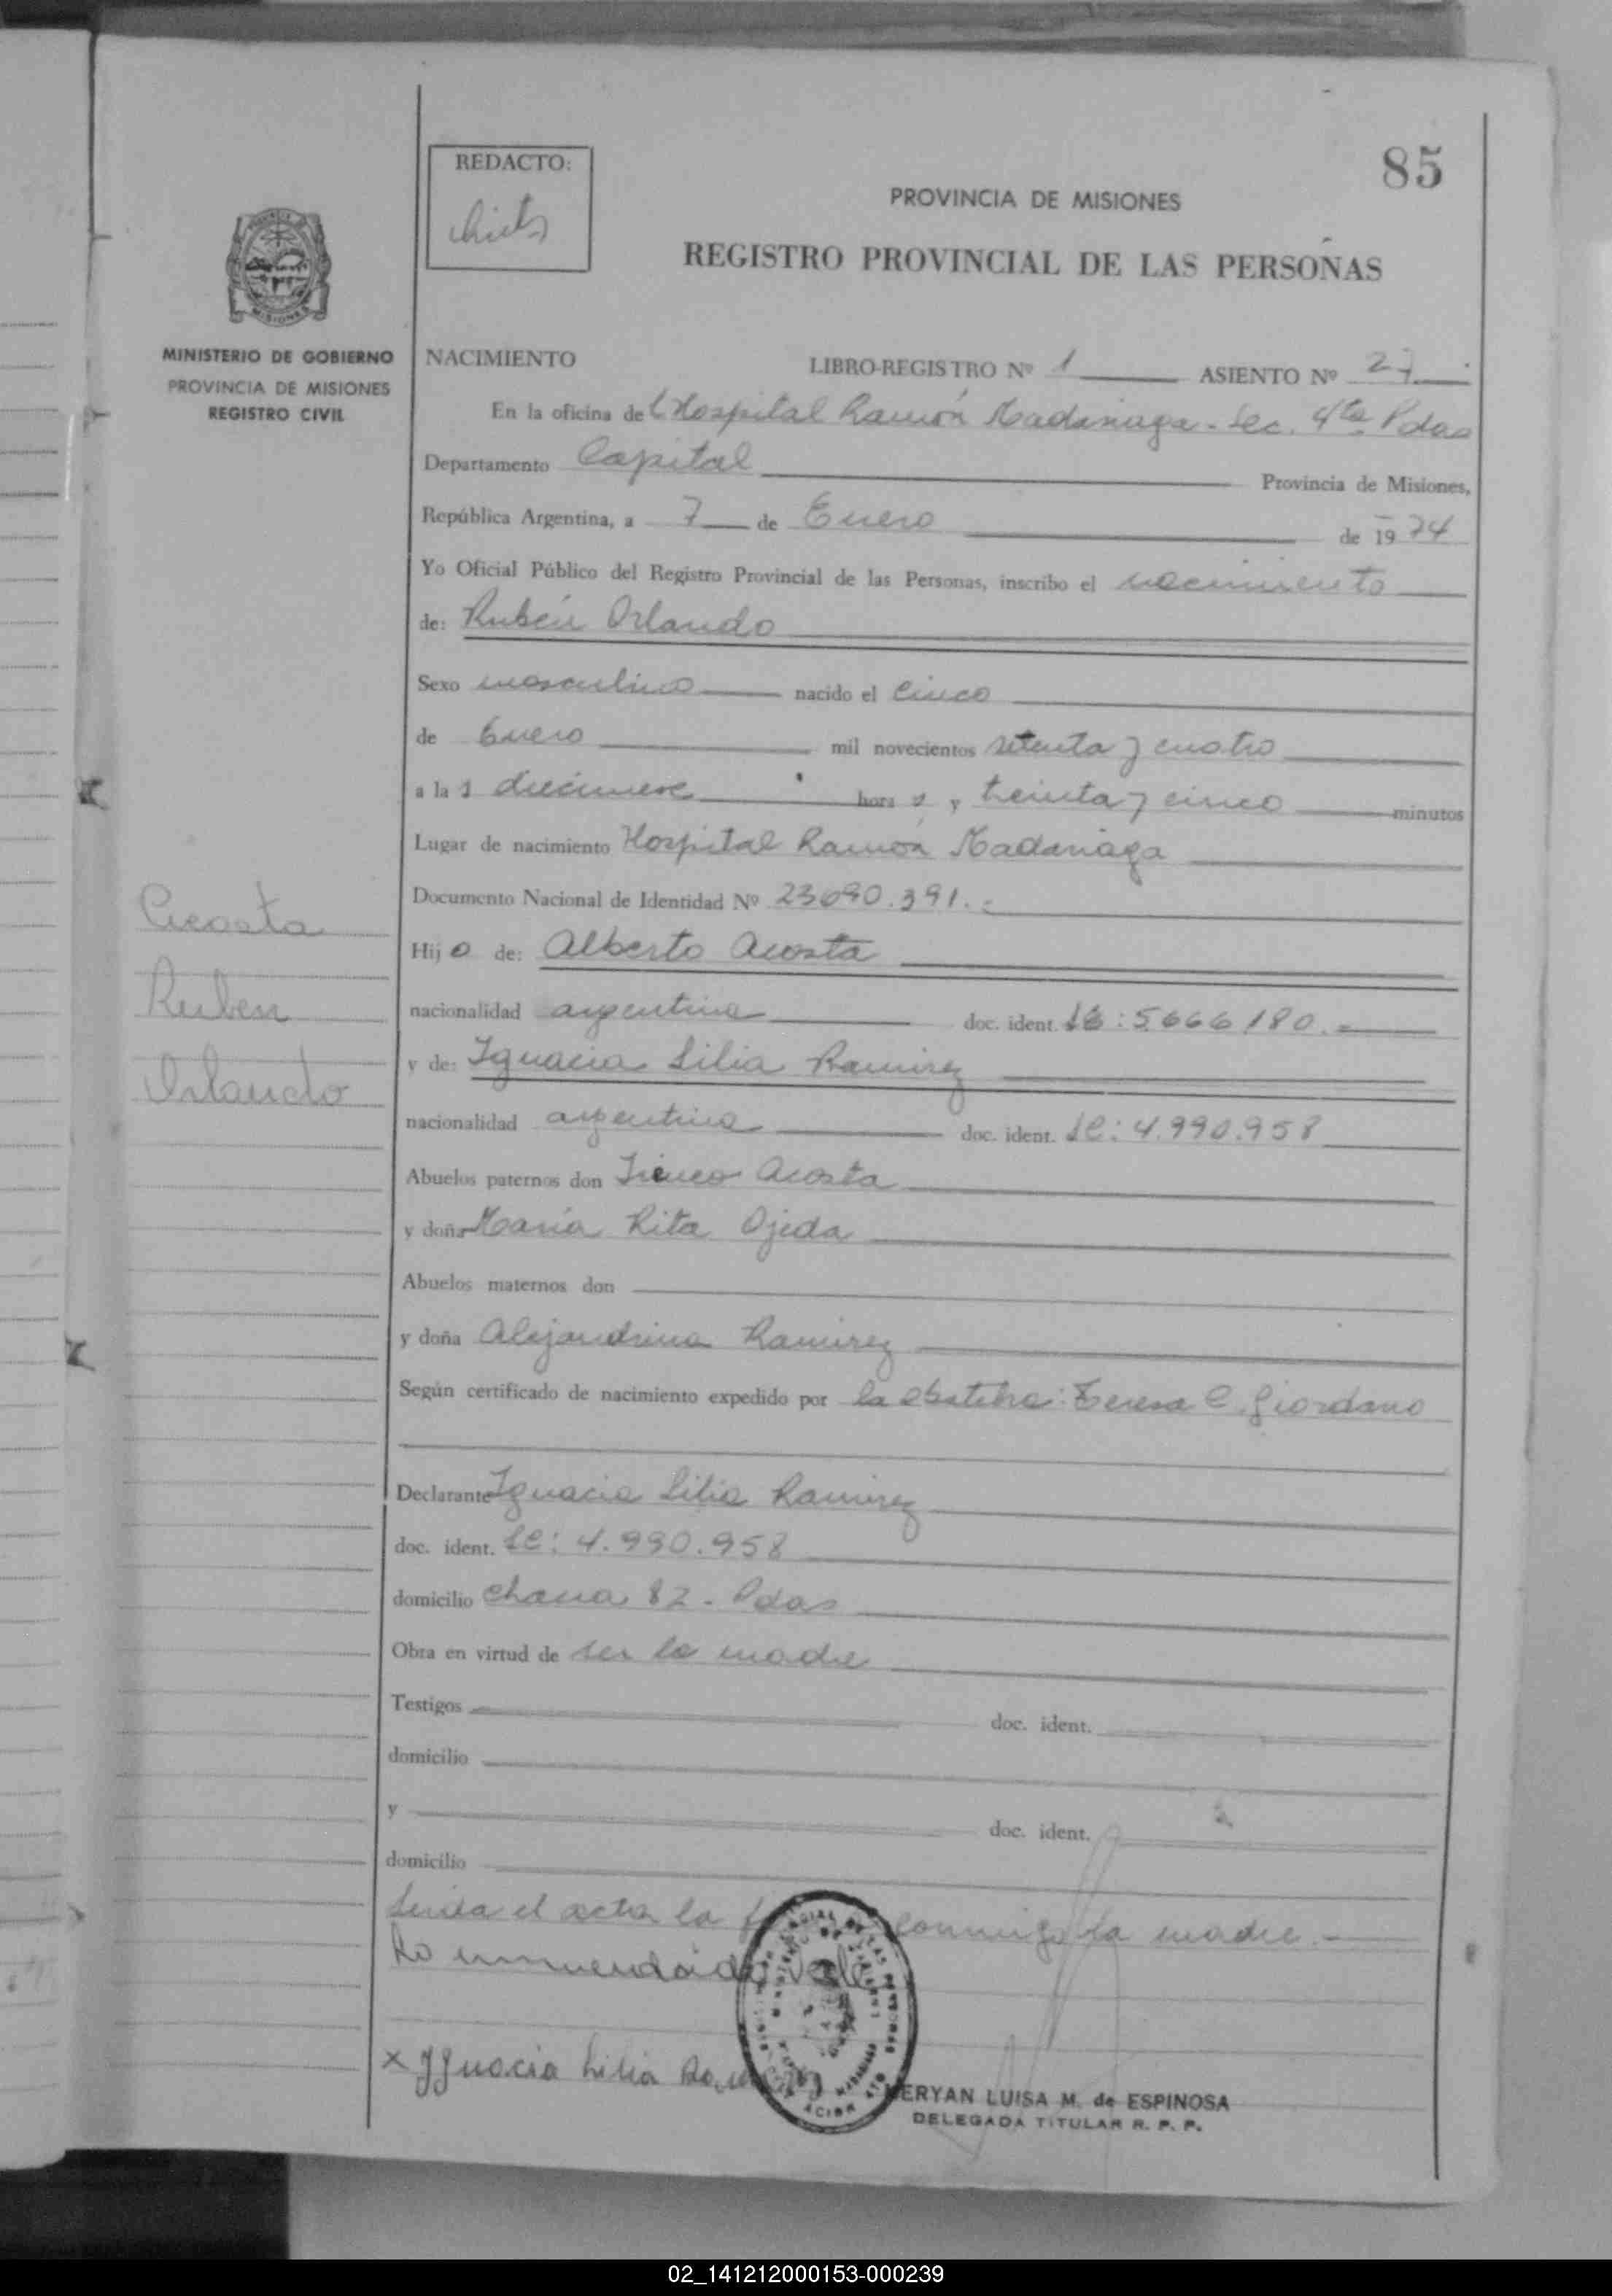 85
REDACTO:
PROVINCIA DE MISIONES
REGISTRO PROVINCIAL DE LAS PERSONAS
MISIONES
MINISTERIO DE GOBIERNO
PROVINCIA DE MISIONES
REGISTRO CIVIL
NACIMIENTO LIBRO-REGISTRO Nº 1 ASIENTO Nº 27
En la oficina del Hospital Ramón Madariaga - Sec. 4ta Pdas
Departamento Capital Provincia de Misiones,
República Argentina, a 7 de Enero de 1974
Yo Oficial Público del Registro Provincial de las Personas, inscribo el nacimiento
de: Rubén Orlando
Sexo masculino nacido el cinco
de Enero mil novecientos setenta y cuatro
a las diecinueve horas y treinta y cinco minutos
Lugar de nacimiento Hospital Ramón Madariaga
Documento Nacional de Identidad Nº 23.690.391.-
Acosta
Rubén
Orlando
Hijo de: Alberto Acosta
nacionalidad argentina doc. ident. LE: 5.666.180.-
y de: Ignacia Lilia Ramirez
nacionalidad argentina doc. ident. LC: 4.990.958
Abuelos paternos don Acosta
y doña María Rita Ojeda
Abuelos maternos don
y doña Alejandrina Ramirez
Según certificado de nacimiento expedido por la obstetra: Teresa C. Giordano
Declarante Ignacia Lilia Ramirez
doc. ident. LC: 4.990.958
domicilio Chacra 82 - Pdas
Obra en virtud de ser la madre
Testigos doc. ident.
domicilio
y doc. ident.
domicilio
Leida el acta la conmigo la madre.-
Lo enmendado Vale
x Ignacia Lilia Ramirez
MERYAN LUISA M. de ESPINOSA
DELEGADA TITULAR R. P. P.
02_141212000153-000239